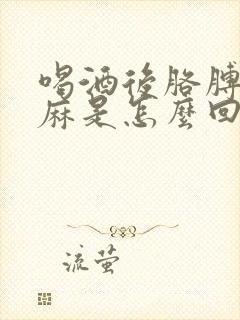 喝酒後胳膊
麻是怎麼回
流萤